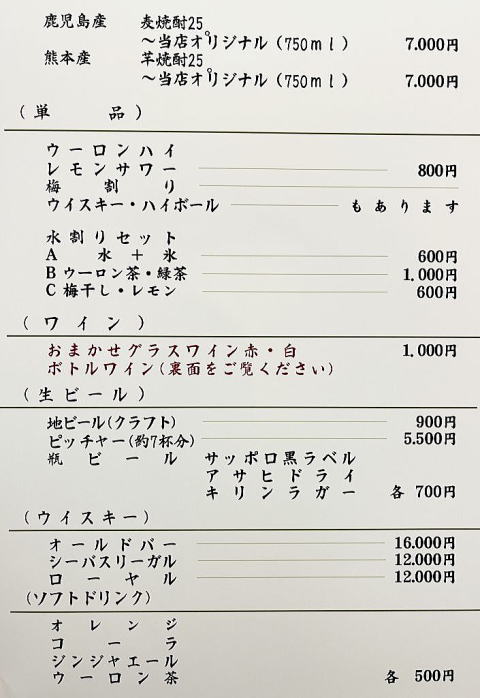 鹿児島産 麦焼酎25
～当店オリジナル（750ml） 7.000円
熊本産 芋焼酎25
～当店オリジナル（750ml） 7.000円
（単品）
ウーロンハイ
レモンサワー 800円
梅割り
ウイスキー・ハイボール もあります
水割りセット
A 水＋氷 600円
B ウーロン茶・緑茶 1.000円
C 梅干し・レモン 600円
（ワイン）
おまかせグラスワイン赤・白 1.000円
ボトルワイン（裏面をご覧ください）
（生ビール）
地ビール(クラフト) 900円
ピッチャー(約7杯分) 5.500円
瓶ビール サッポロ黒ラベル
アサヒドライ
キリンラガー 各 700円
（ウイスキー）
オールドパー 16.000円
シーバスリーガル 12.000円
ローヤル 12.000円
（ソフトドリンク）
オレンジ
コーラ
ジンジャエール
ウーロン茶 各 500円